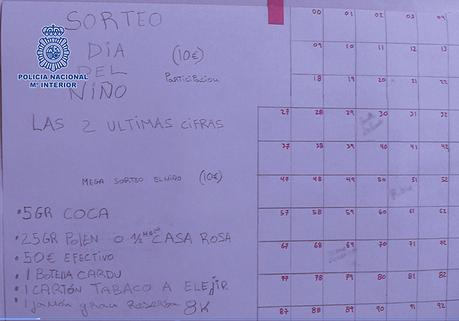 SORTEO
DÍA
DEL
NIÑO
(10€)
Participacion
POLICÍA NACIONAL
Mº INTERIOR
LAS 2 ULTIMAS CIFRAS
MEGA SORTEO EL NIÑO (10€)
• 5GR COCA
• 25GR POLEN O ½ CASA ROSA
• 50€ EFECTIVO
• 1 BOTELLA CARDU
• 1 CARTÓN TABACO A ELEJIR
• 1 jamón gran Reserva 8K
00 01 02 03 04
09 10 11 12 13
18 19 20 21 22
27 28 29 30 31 32
37 38 39 40 41 42
47 48 49 50 51 52
57 58 59 60 61 62
67 68 69 70 71 72
77 78 79 80 81 82
87 88 89 90 91 92